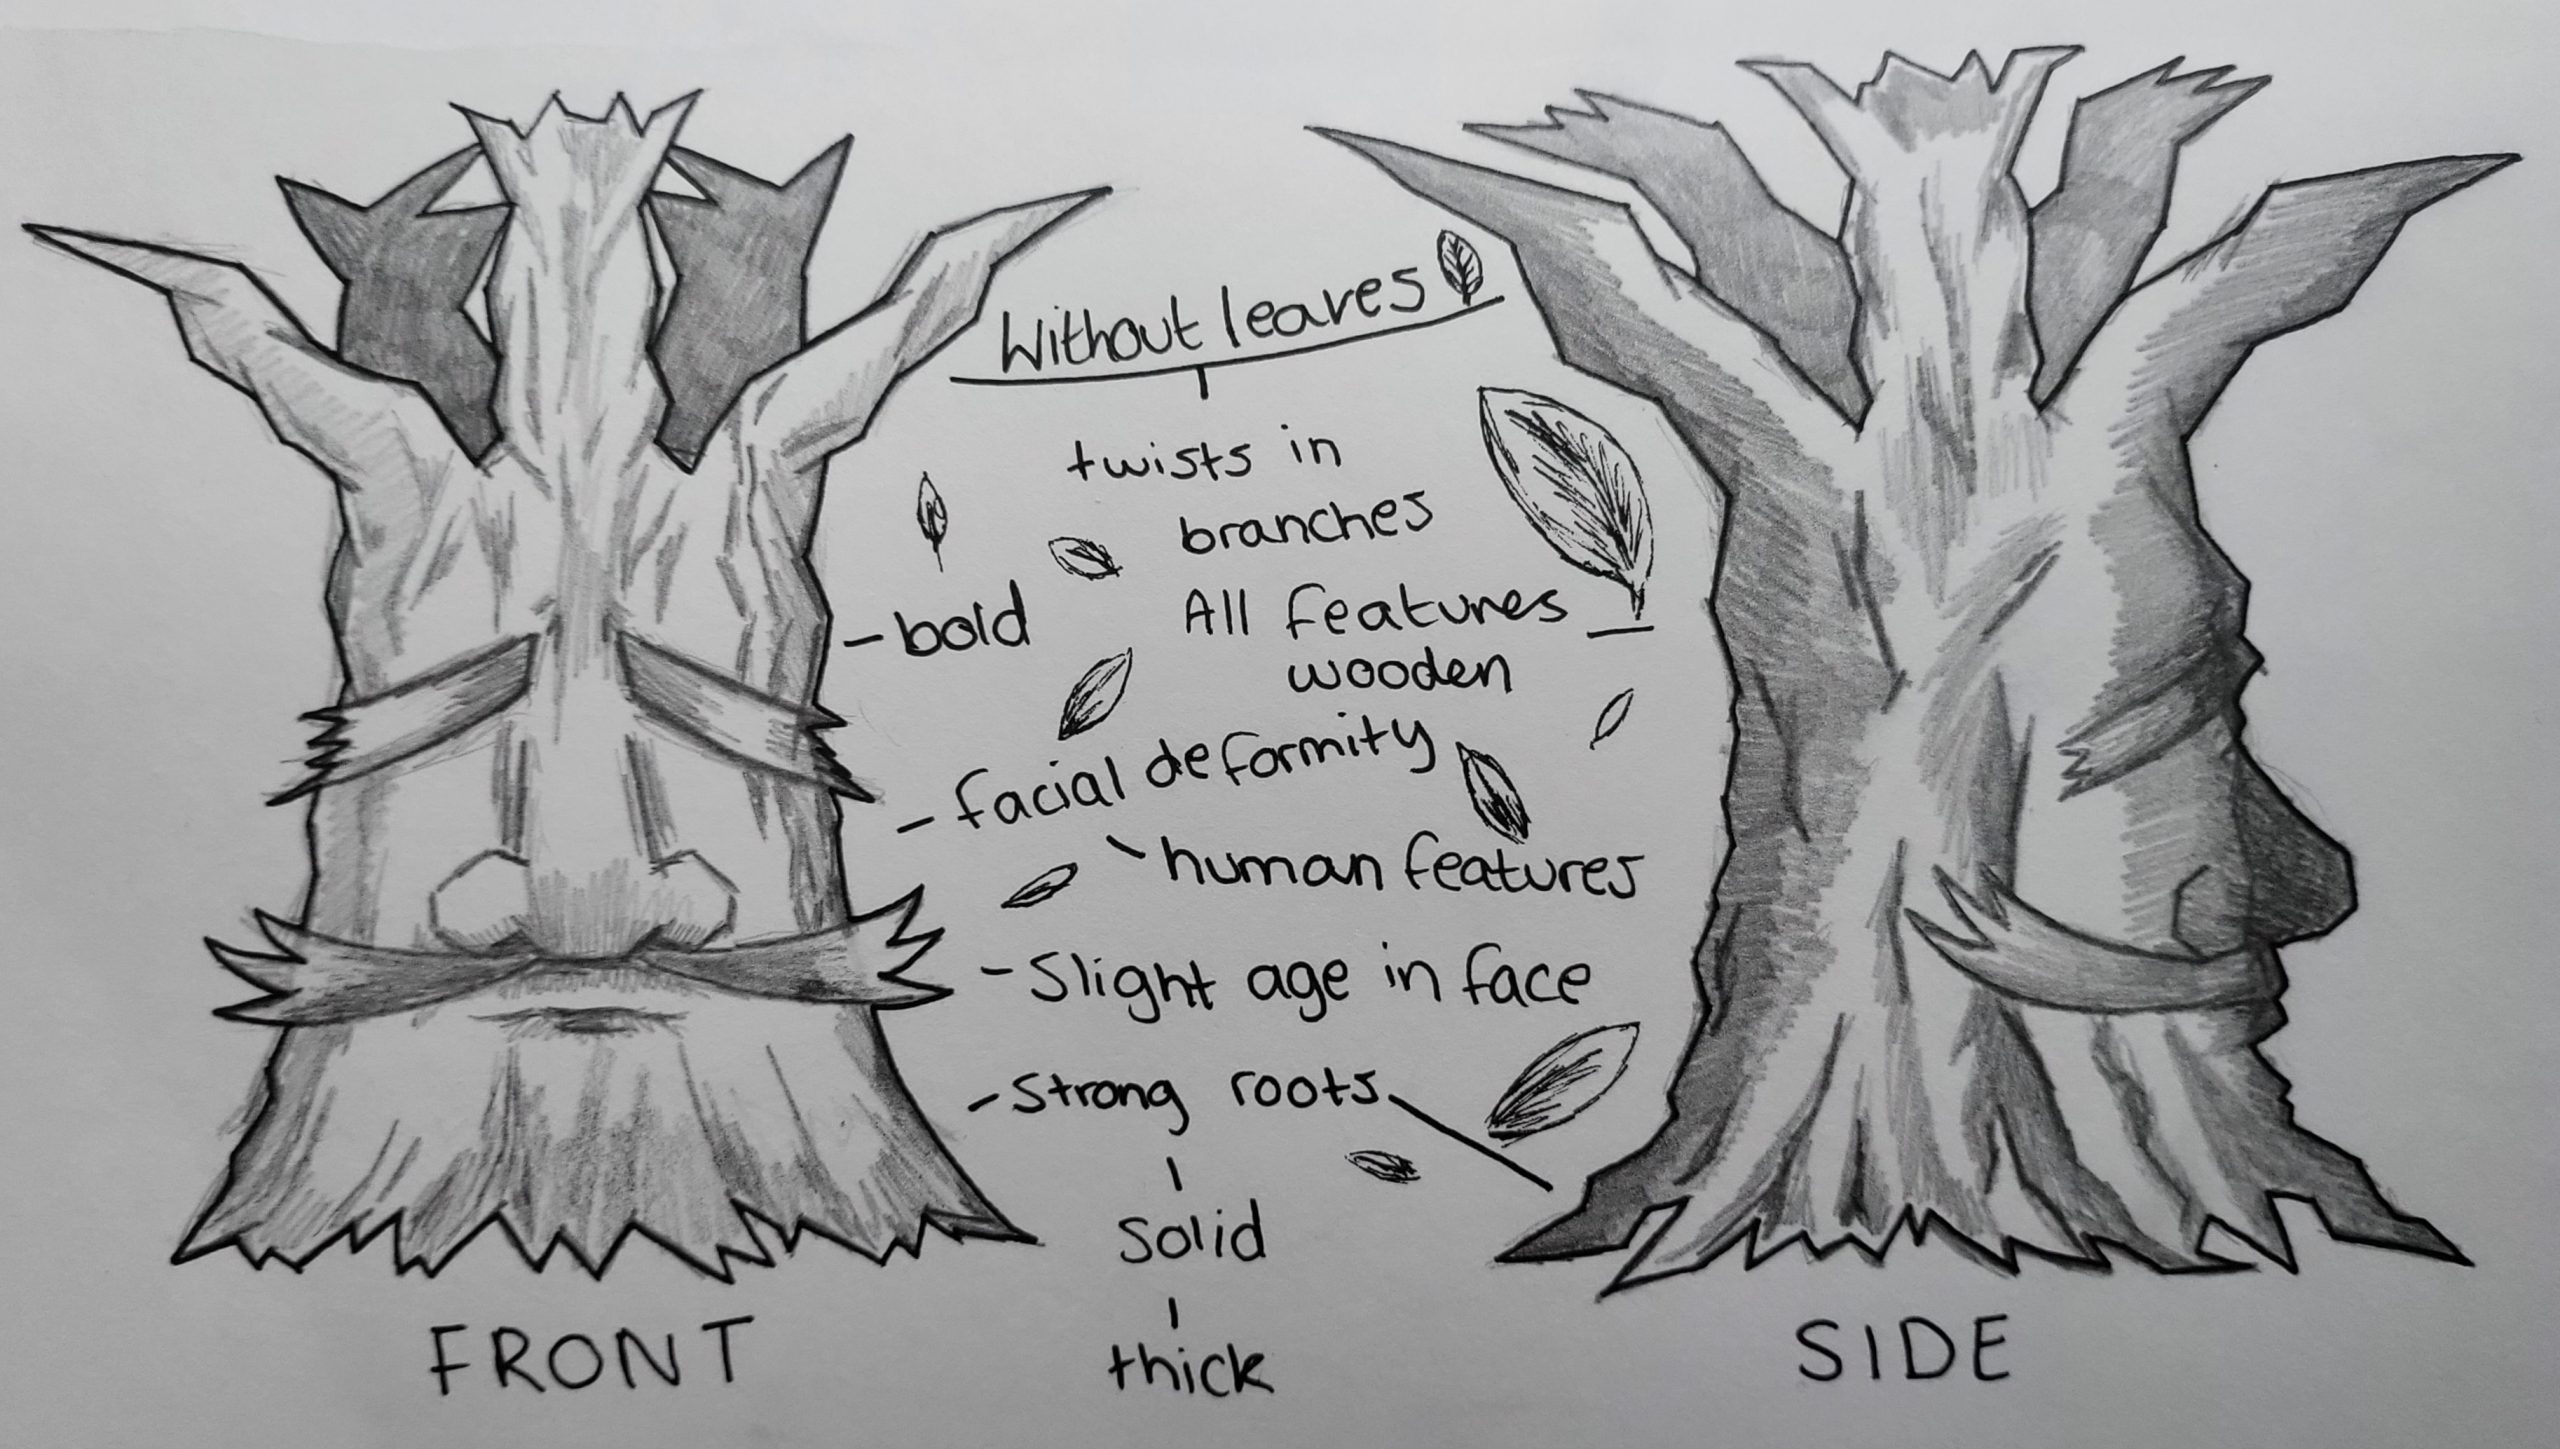 Without leaves
twists in
branches
- bold
All features -
wooden
- facial deformity
human features
- Slight age in face
- Strong roots
solid
thick
FRONT
SIDE